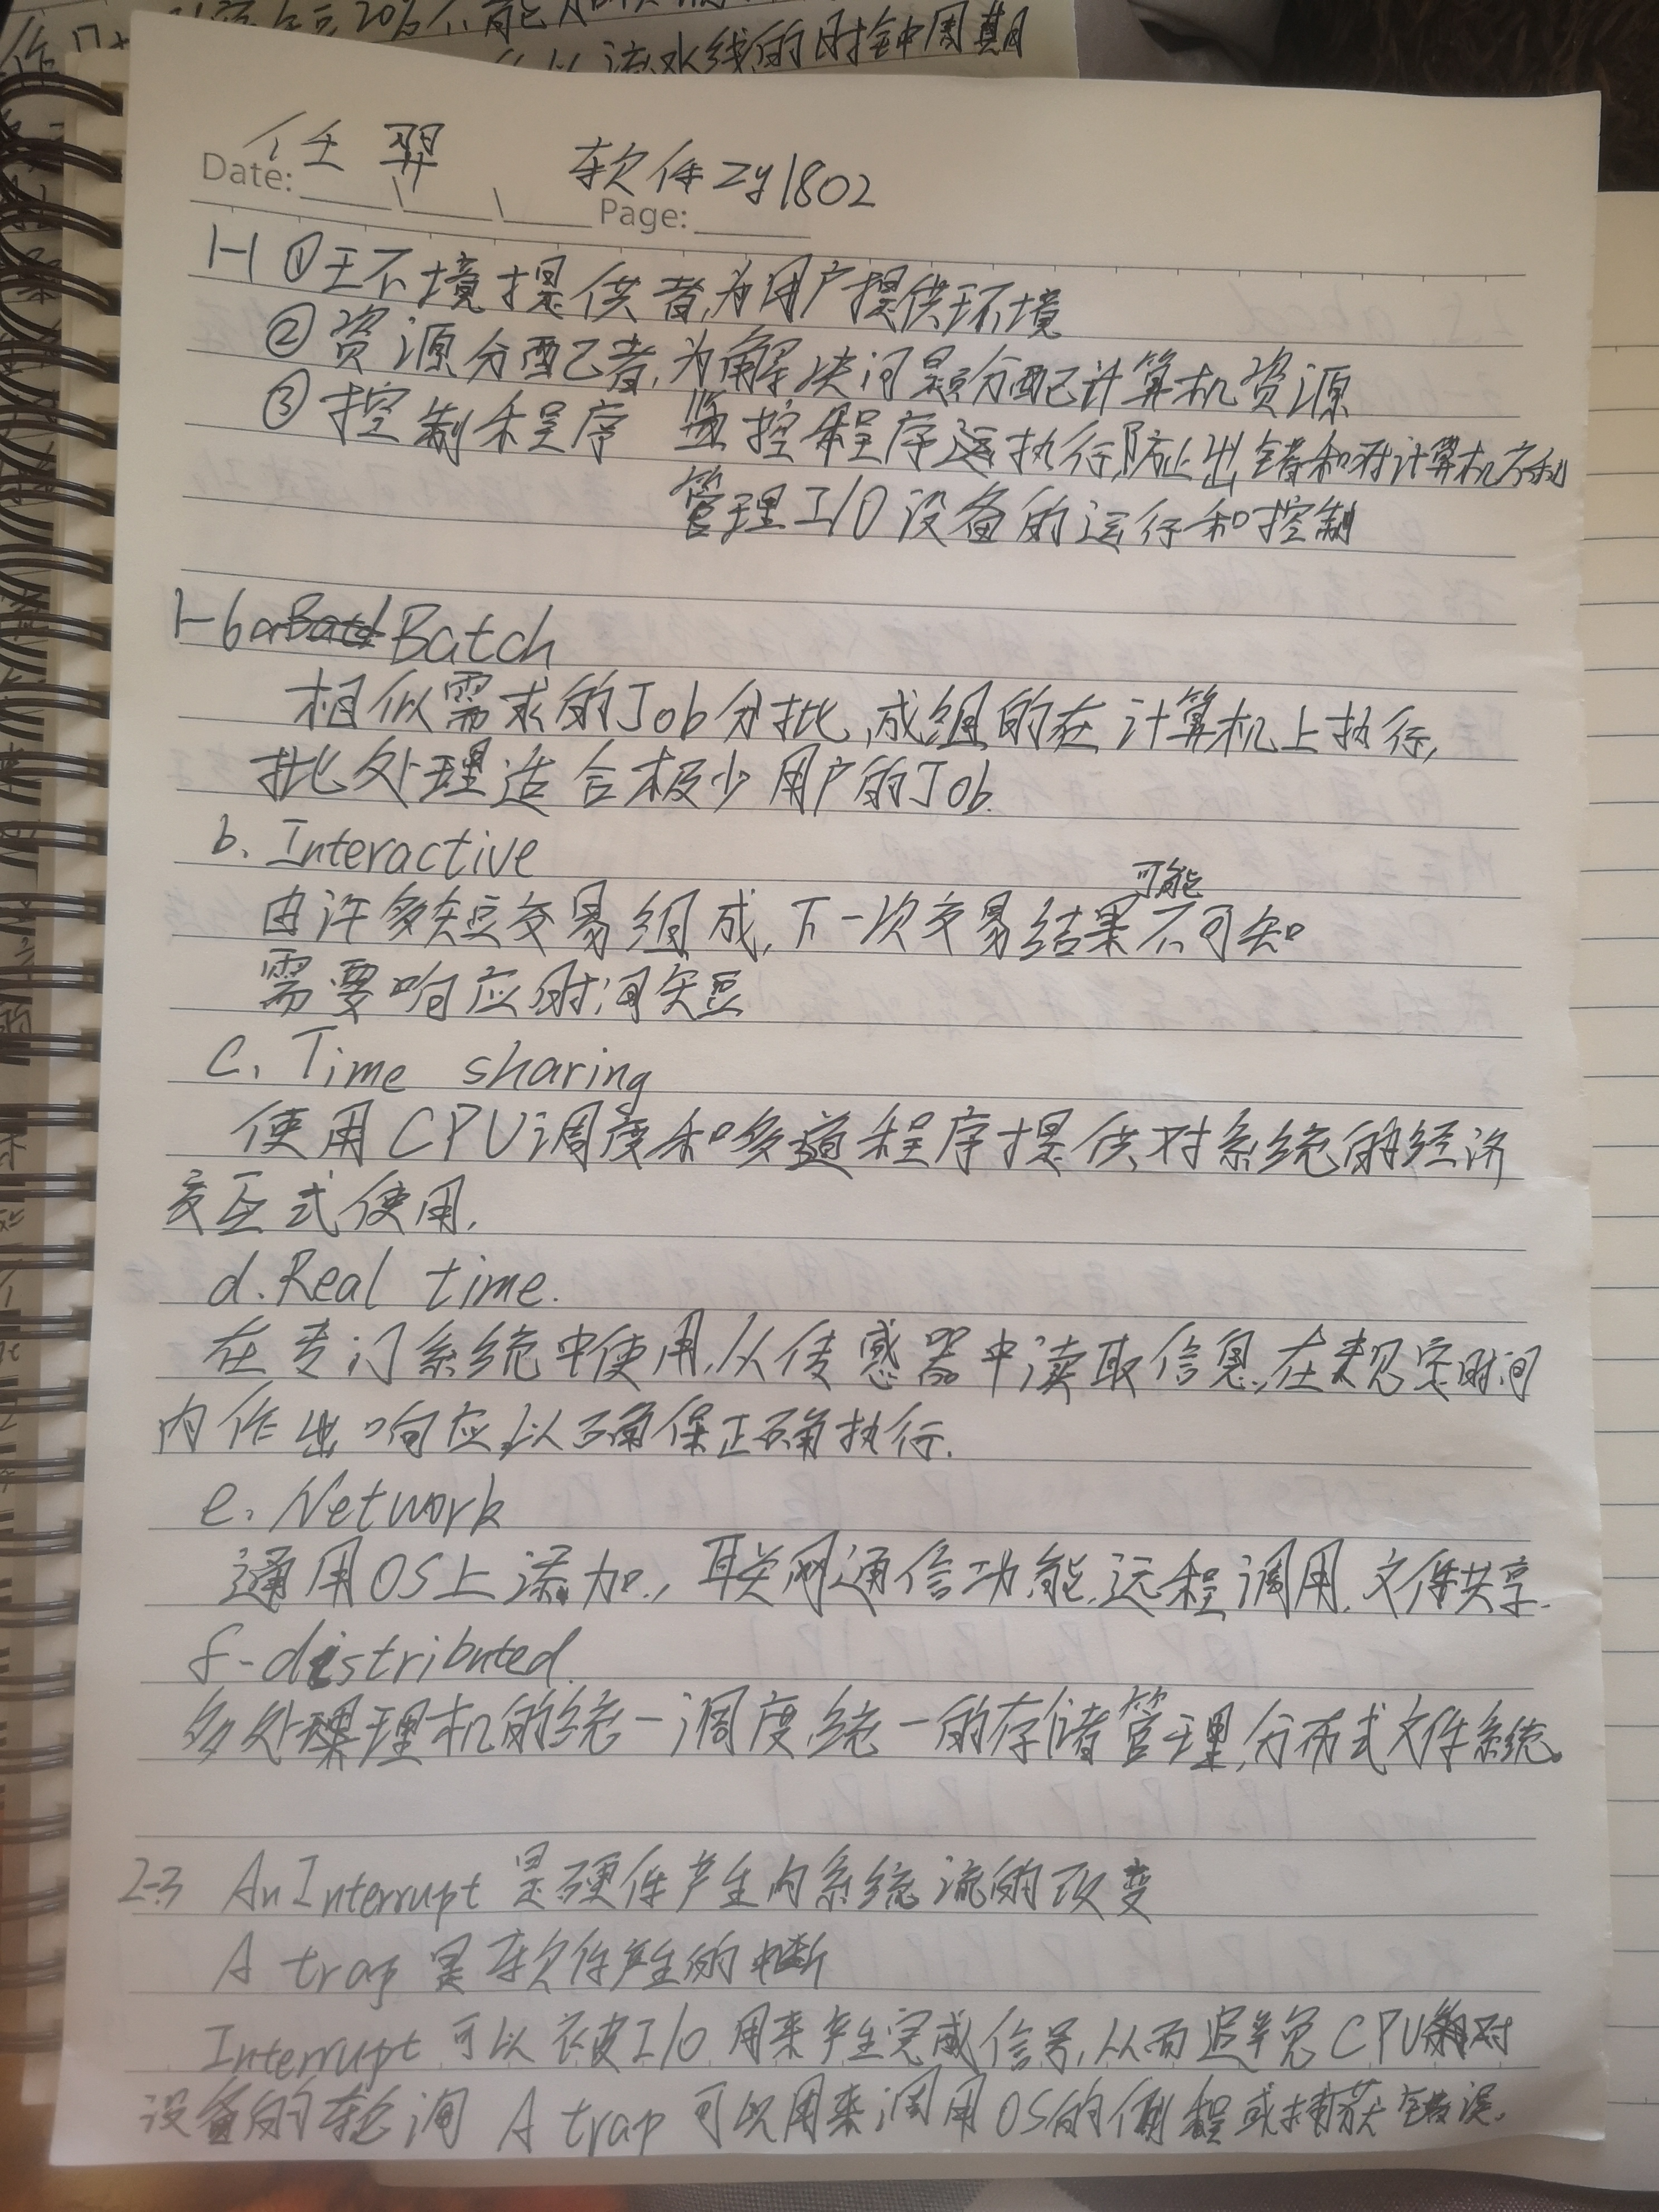 流水线的时钟周期
任羿 软件zy1802
Date:
Page:
1-1 ①环境提供者,为用户提供环境
②资源分配者,为解决问题分配计算机资源
③控制程序 监控程序执行,防止出错和对计算机
管理I/O设备的运行和控制
1-6 a Batch
相似需求的Job分批,成组的在计算机上执行,
批处理适合极少用户的Job.
b. Interactive
可能
由许多短交易组成,下一次交易结果不可知
需要响应时间短
c. Time sharing
使用CPU调度和多道程序提供对系统的经济
交互式使用.
d. Real time.
在专门系统中使用,从传感器中读取信息,在规定时间
内作出响应,以确保正确执行.
e. Network
通用OS上添加,联网通信功能,远程调用,文件共享.
f-distributed.
多处理机的统一调度,统一的存储管理,分布式文件系统。
2-3 An Interrupt 是硬件产生内系统流的改变
A trap 是软件产生的中断
Interrupt 可以被I/O 用来产生完成信号,从而避免CPU对
设备的轮询 A trap 可以用来调用OS的例程或捕获错误.